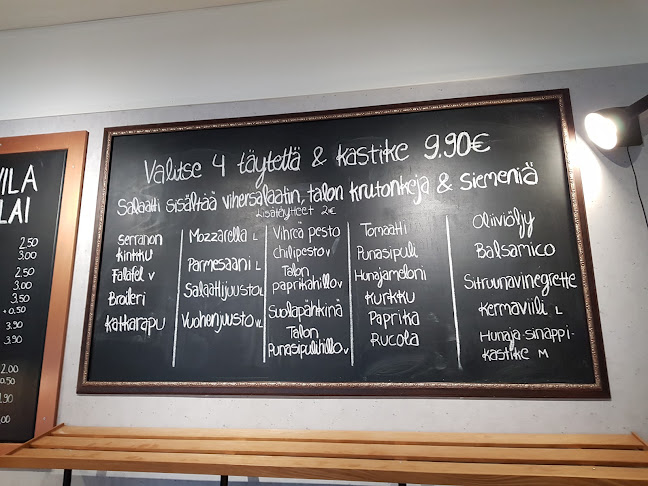 VILA
LAI
2.50
3.00
2.50
3.00
+0.50
3.90
3.90
2.00
+0.50
Valitse 4 täytettä & kastike 9.90€
Salaatti sisältää vihersalaatin, talon krutonkeja & siemeniä
Lisätäytteet 2€
Serranon
kinkku
Falafel v
Broileri
Katkarapu
Mozzarella L
Parmesaani L
Salaattijuusto VL
Vuohenjuusto VL
Vihreä pesto
Chilipesto v
Talon
paprikahillo v
Suolapähkinä
Talon
Punasipulihillo v
Tomaatti
Punasipuli
Hunajameloni
Kurkku
Paprika
Rucola
Oliiviöljy
Balsamico
Sitruunavinegrette
Kermaviili L
Hunaja sinappi-
kastike M